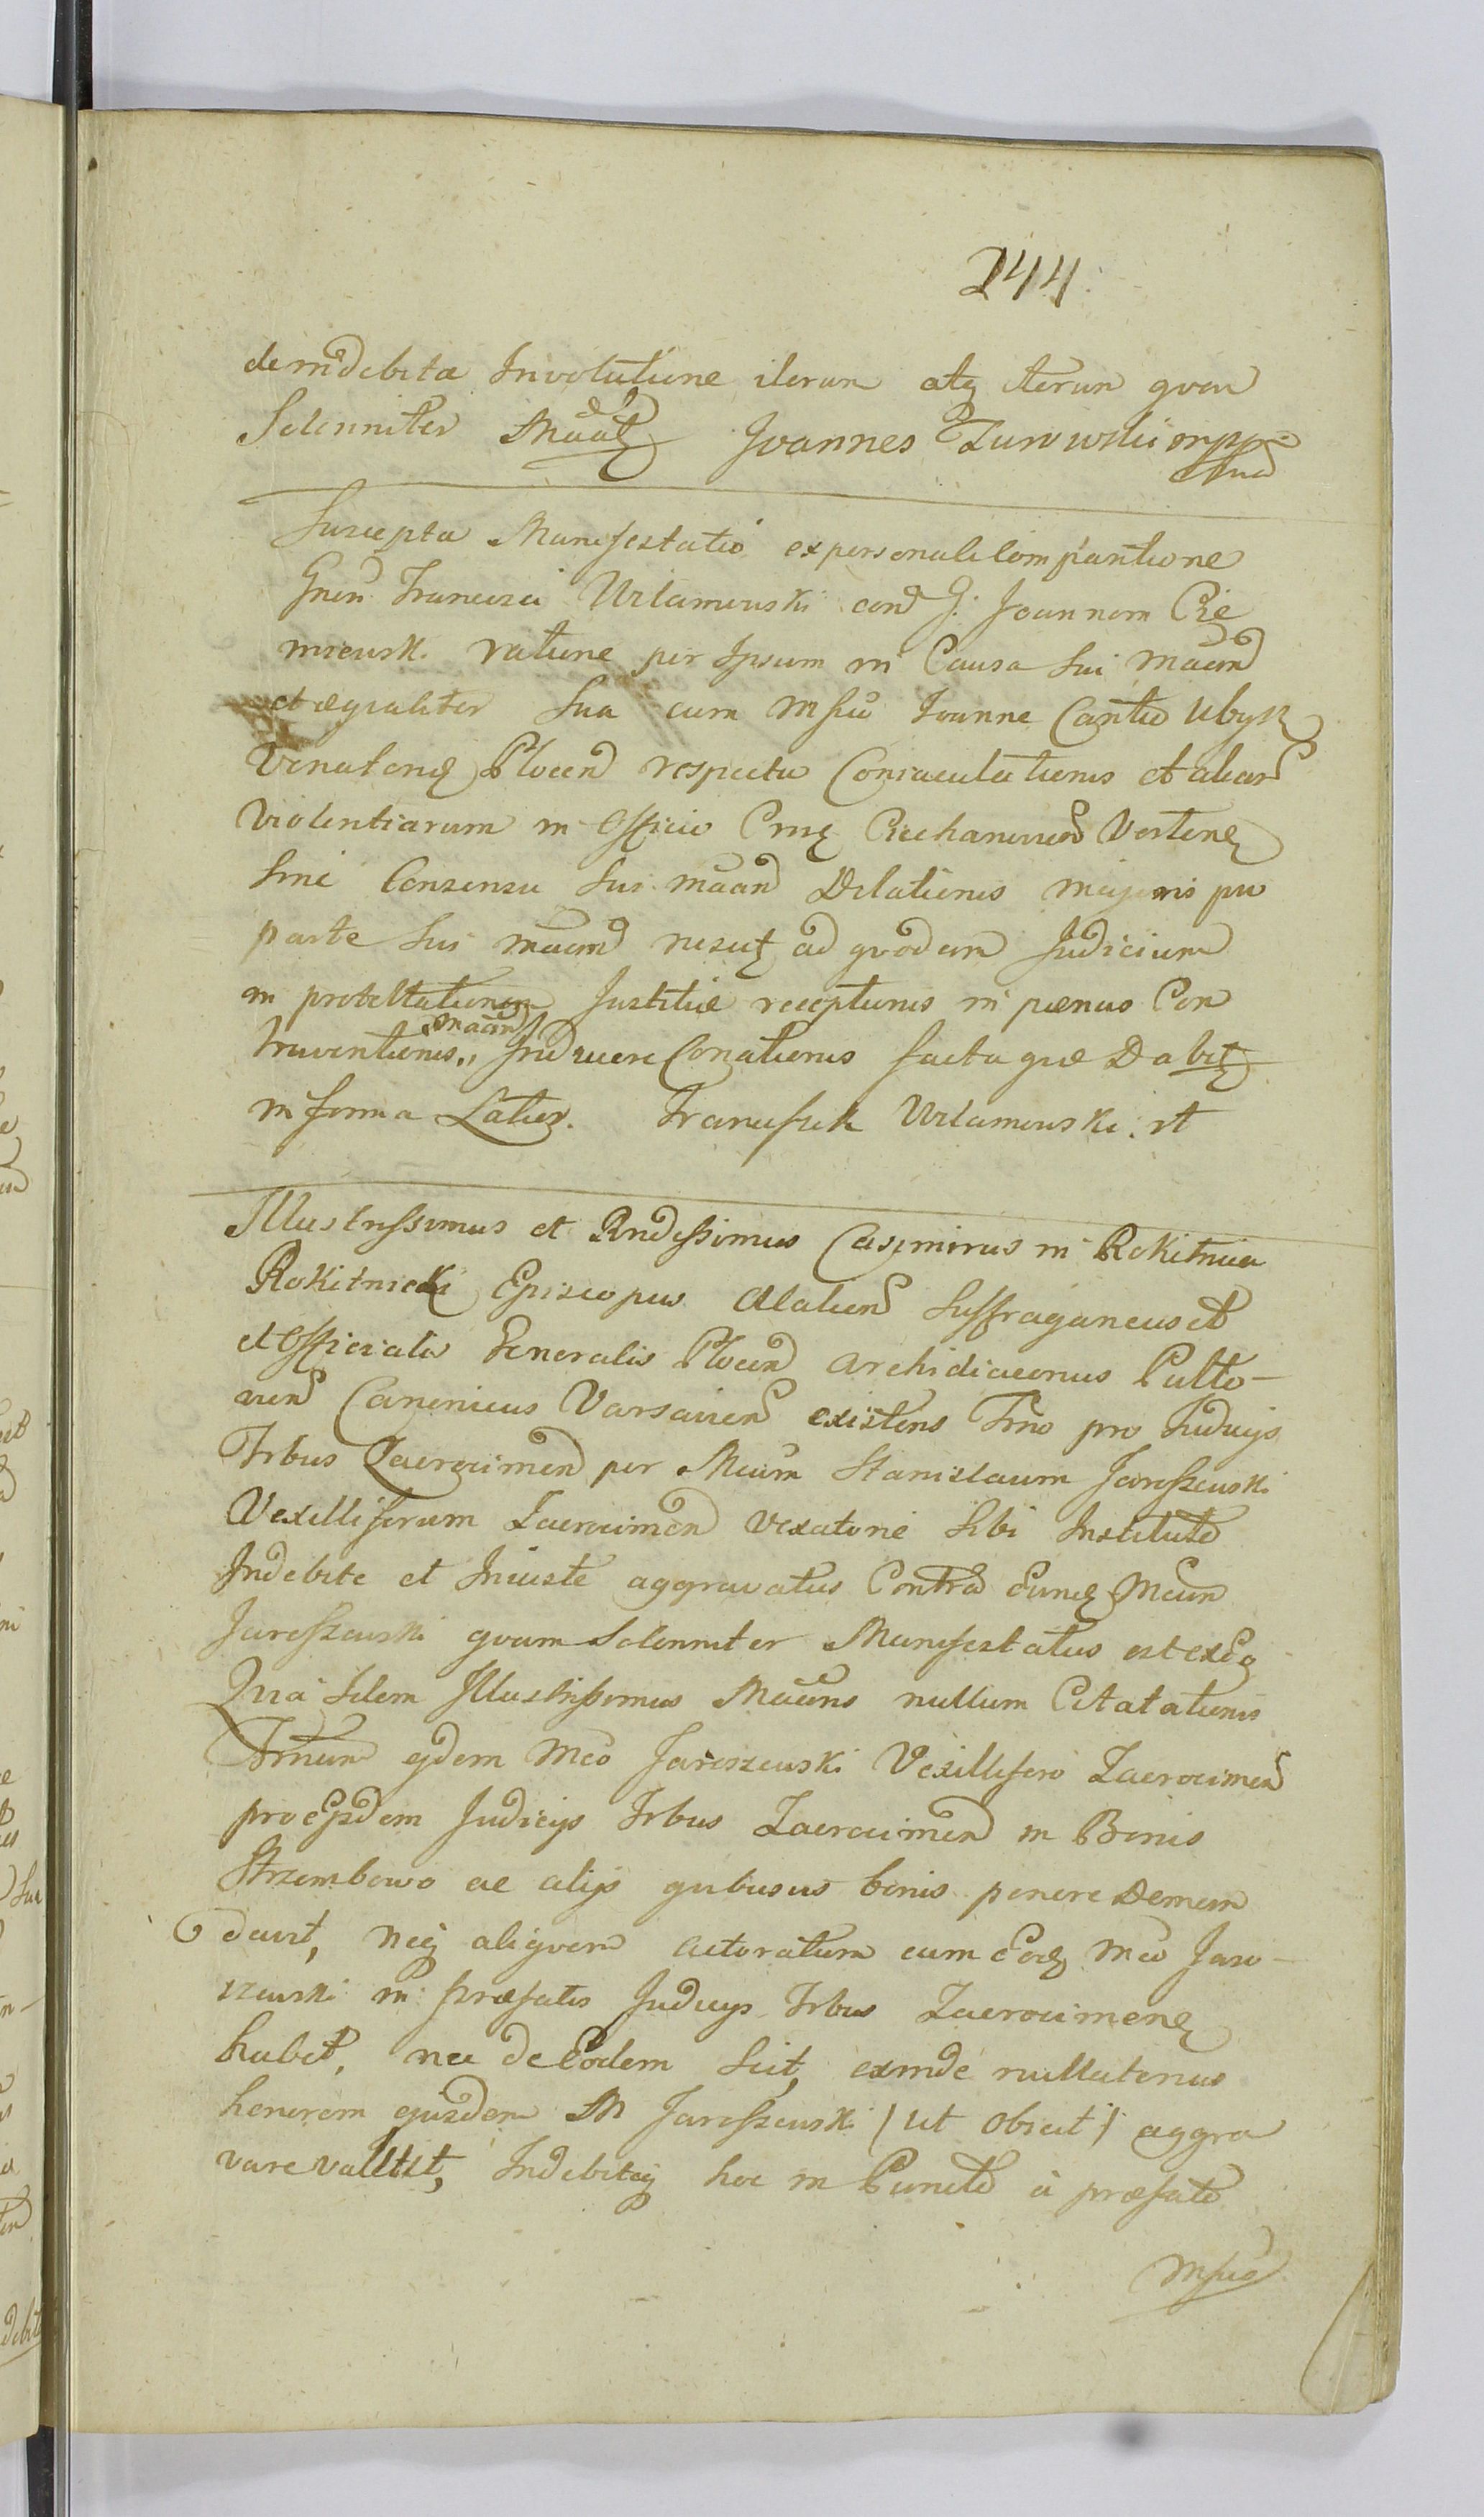 244.
de indebita Involutione iterum atq iterum quam
Solenniter Joannes Zurowski mpp
Suscepta Manifestatio ex personali Comparitione
Gnen Francisci Ustamowski cond G. Joannem Cie
mieusk. ratione per Ipsum in Causa sui maam
et aequaliter sua cum Msico Joanne Cantio Ubysz
Venatorid Plocen respectu Coniaculationis et aliar
Violentiarum in Officio Crms Ciechanovien Verten
sine Consensu sui maan Dilationis majoris pro
parte sui maam ad quodam Judicium
in protestationem Justitiae receptionis in paenas Con
traventionis maam Inducere Conationis facta quae Dabit
in forma Latior. Franciszek Ustamowski st
Illustrissimus et Rndissimus Casimirus in Rokitnica
Rokitnicki Episcopus Alalien Suffraganeus et
et Officialis Generalis Plocen Archidiaconus Pulto-
vien Canonicus Varsavien existens Trno pro Judicijs
Trbus Zacrocimen per Mcum Stanislaum Jaroszewski
Vexilliferum Zacrocimen vexatorie sibi Instituto
Indebite et Iniuste aggravatus Contra Eund Mcum
Jaroszewski quam solenniter Manifestatus est exeo
Quia Idem Illustrissimus Maans nullum Citatationis
Trnum ejdem Mco Jaroszewski Vexillifero Zacrocimen
pro ejsdem Judicijs Trbus Zacrocimen in Bonis
Strzembowo ac alijs quibusvis bonis ponere Deman
davit, neq aliquem actoratum cum Eod Mco Jaro-
szewski in praefatis Judicijs Trbus Zacrocimen
habet, nec de Eodem scit, exinde nullatenus
honorem ejusdem M Jaroszewski / ut obicit / aggra
vare valuit, Indebiteq hoc in Puncto à praefato
Msico